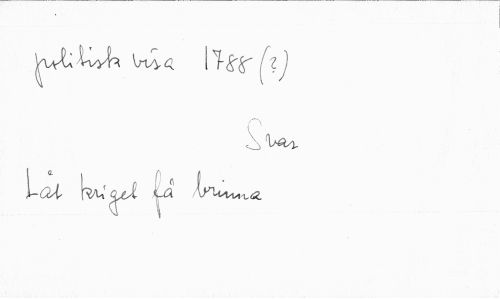 politisk visa 1788 (?)
Svar
Låt kriget få brinna